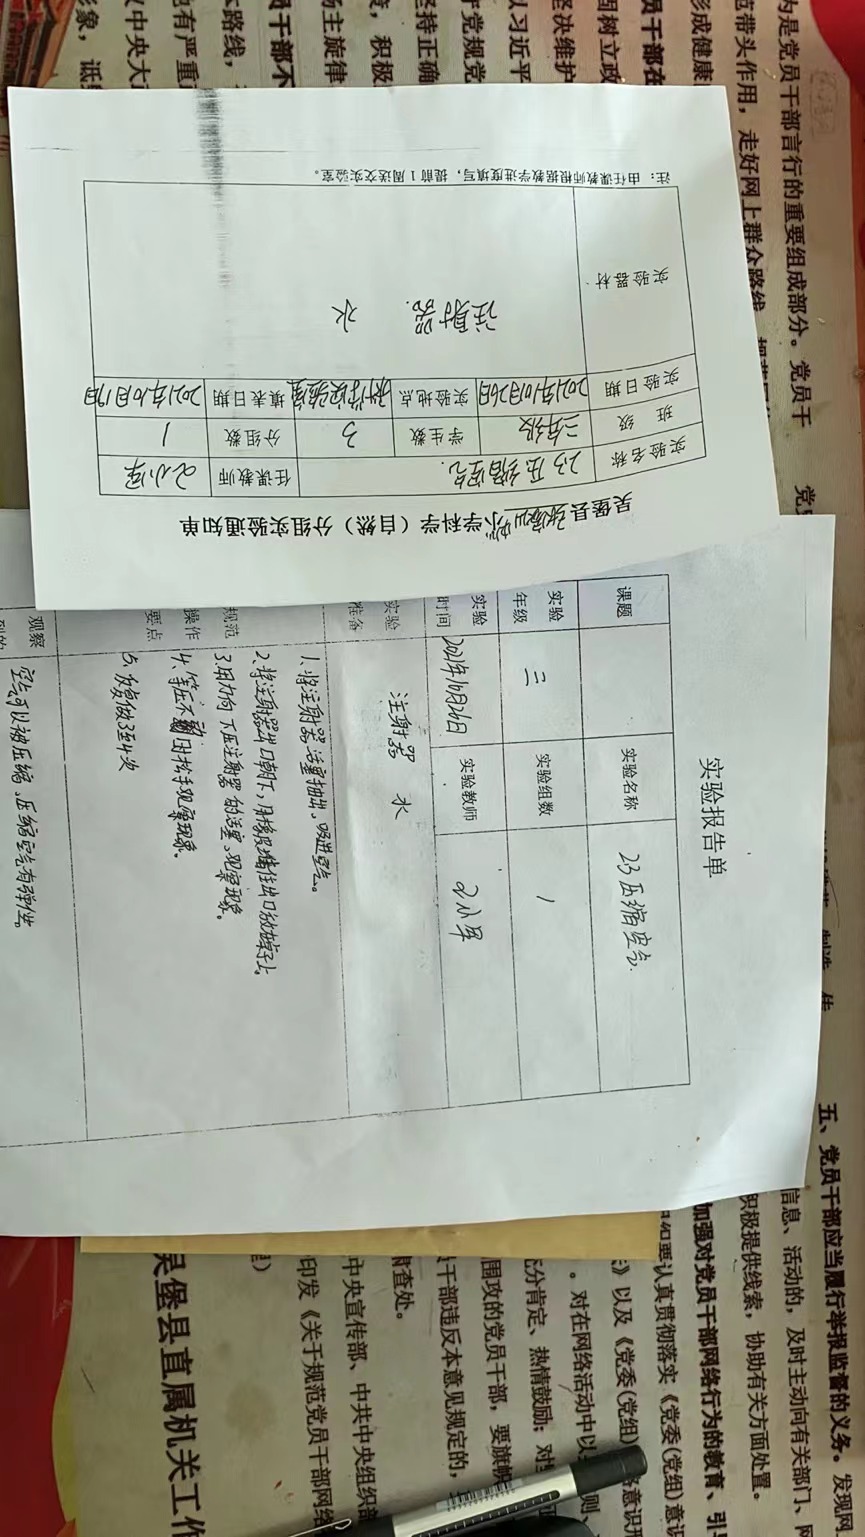 吴堡县张家山中心小学科学（自然）分组实验通知单
实验名称 23 压缩空气 任课教师
班 级 三年级 学生数 3 分组数 1
实验日期 2021年10月26日 实验地点 科学实验室 填表日期 2021年10月19日
实验器材 注射器 水
注：由任课教师根据教学进度填写，提前1周送交实验室。
实验报告单
课题 实验名称 23 压缩空气
实验年级 三 实验组数 1
实验时间 2021年10月26日 实验教师
实验准备 注射器 水
规范操作要点
1、将注射器活塞抽出，吸进空气。
2、将注射器出口朝下，用橡皮堵住出口放在桌上。
3、用力向下压注射器的活塞，观察现象。
4、等压不动时松手观察现象。
5、反复做3至4次
观察
空气可以被压缩、压缩空气有弹性。
为是党员干部言行的重要组成部分。党员干
范带头作用，走好网上群众路线
五、党员干部应当履行举报监督的义务。发现网
信息、活动的，及时主动向有关部门、网
积极提供线索，协助有关方面处置。
加强对党员干部网络行为的教育、引导
组要认真贯彻落实《党委(党组)意识
》以及《党委(党组)
。对在网络活动中以
充分肯定、热情鼓励；对
围攻的党员干部，要旗帜
干部违反本意见规定的，
肃查处。
中央宣传部、中共中央组织部
印发《关于规范党员干部网络
吴堡县直属机关工作